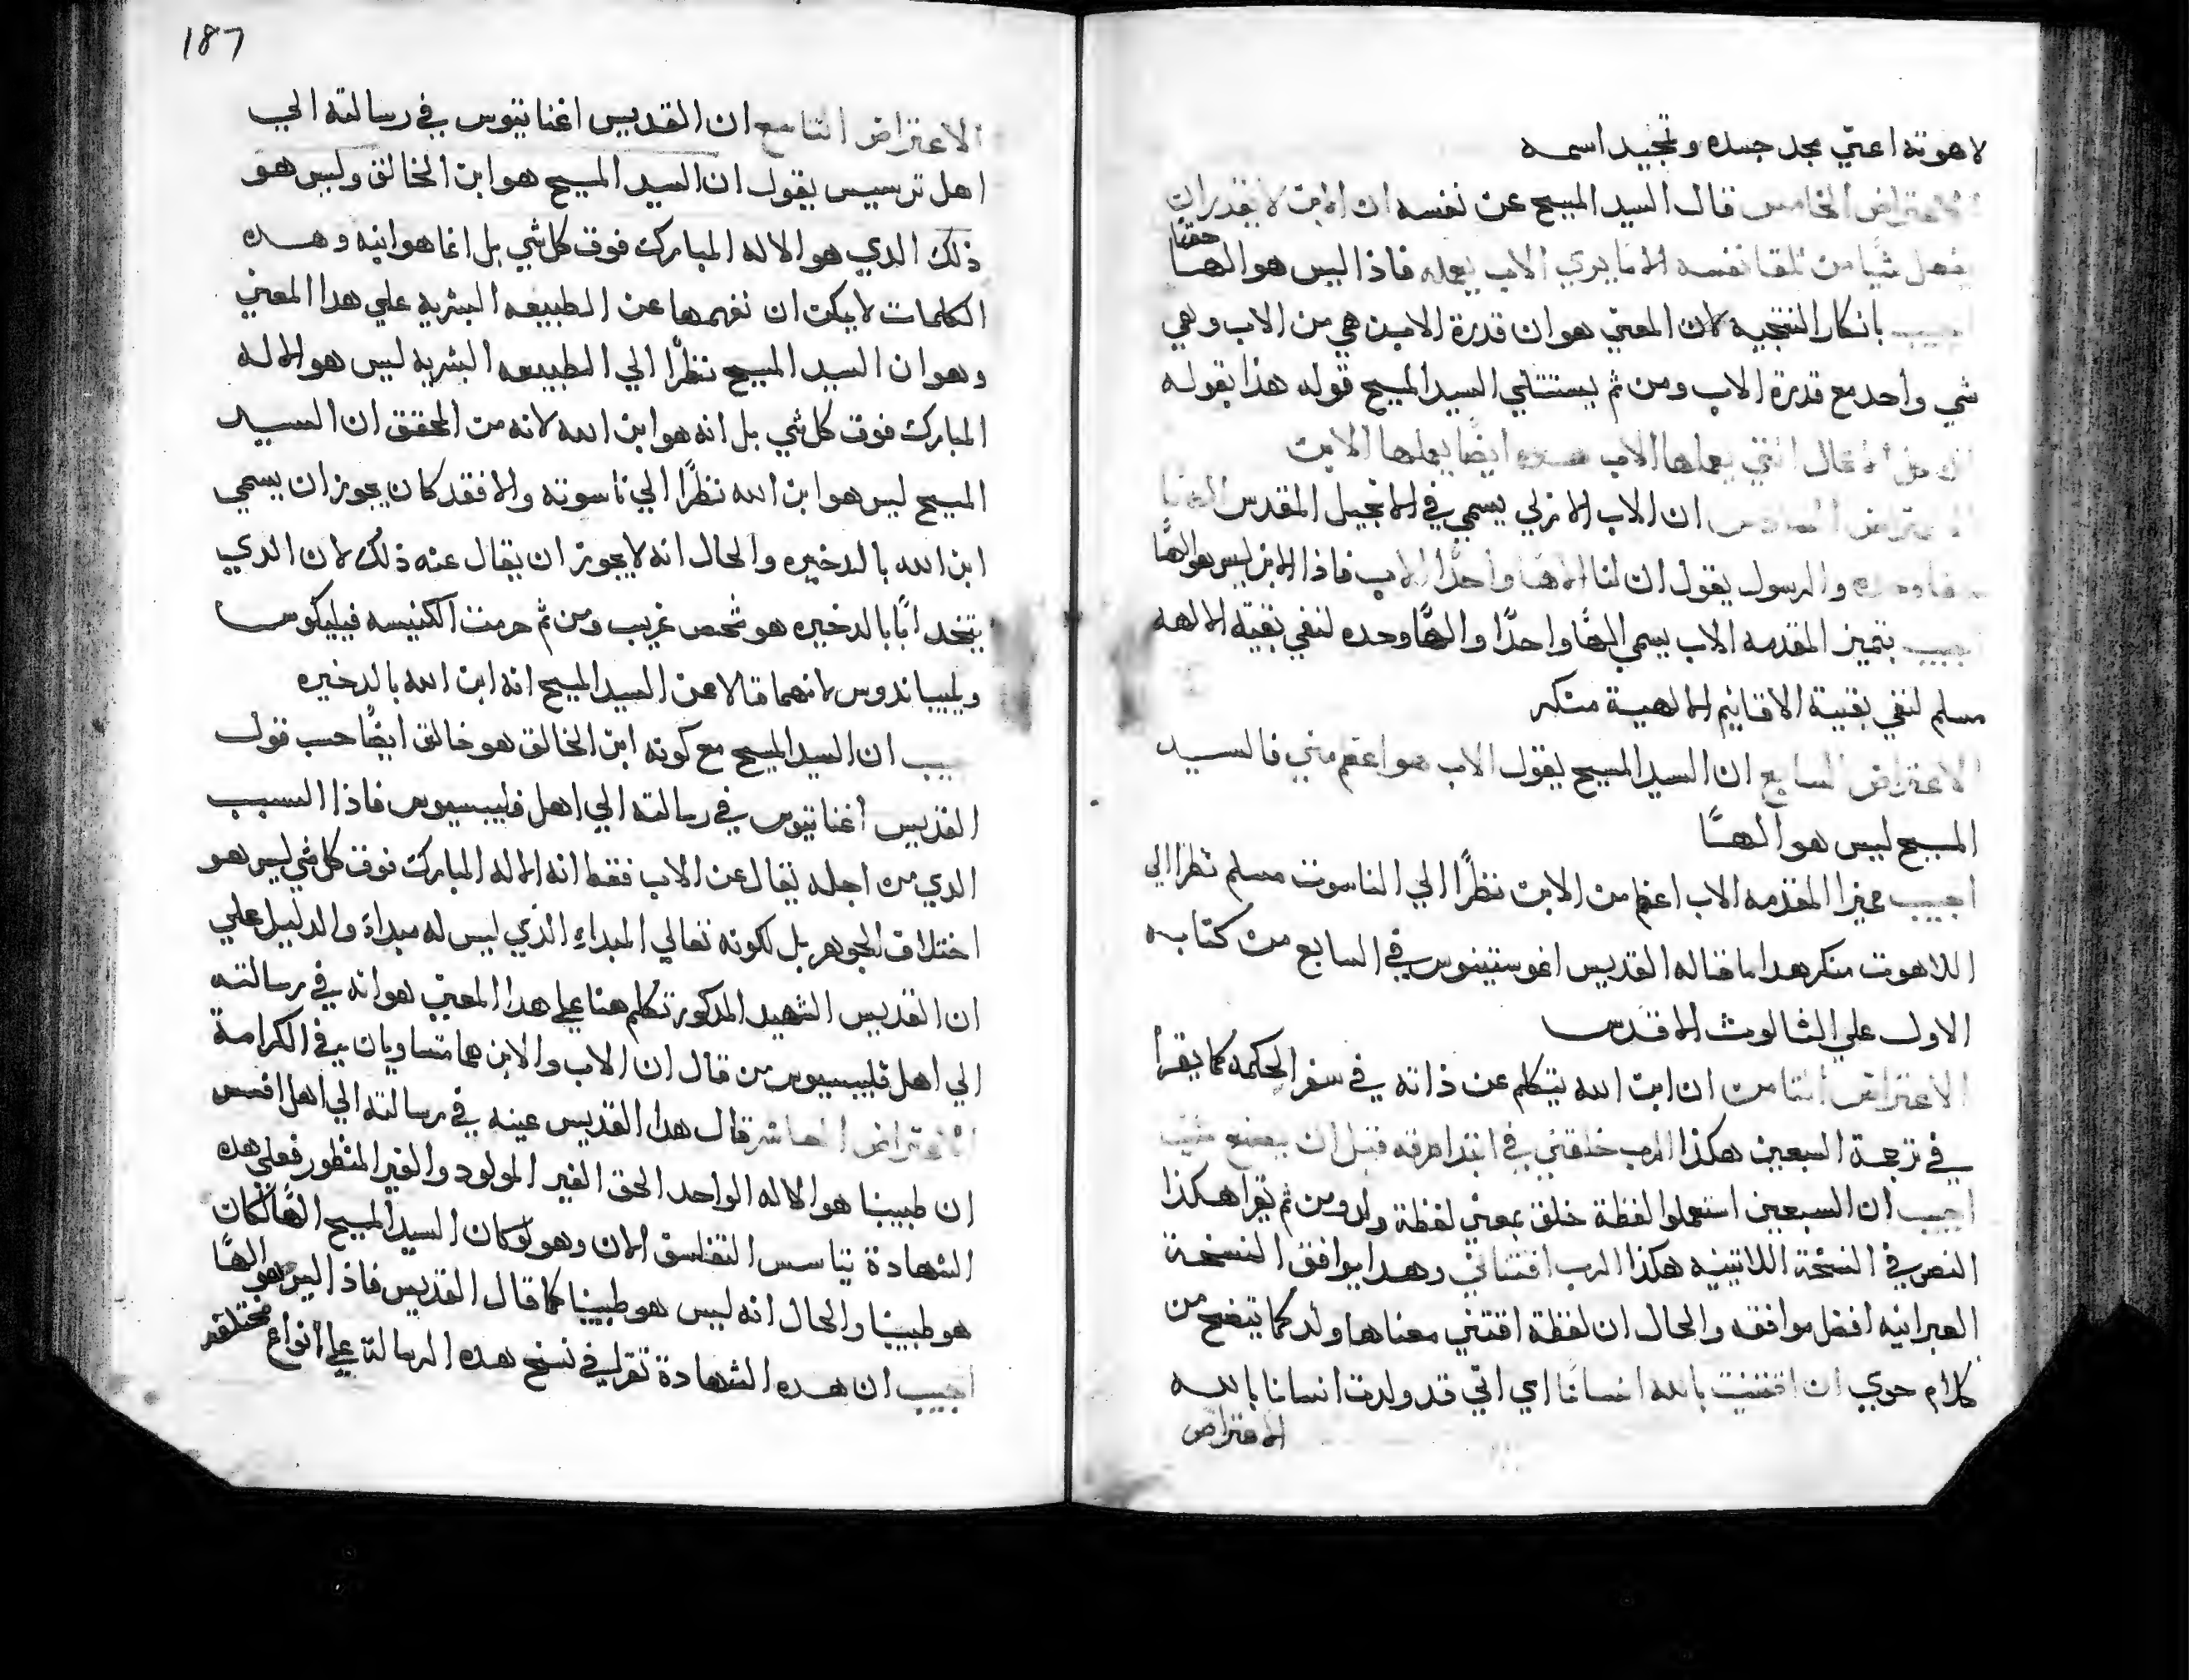 لاهوته اعني مجد جسده وتمجيد اسمه
الاعتراض الخامس قال السيد المسيح عن نفسه ان الابن لا يقدر ان
يفعل شيًا من تلقا نفسه الا ما يري الاب يعمله فاذا ليس هو الهًا حقيقيا
اجيب بانكار النتجيه لان المعني هو ان قدرة الابن هي من الاب وهي
شي واحد مع قدرة الاب ومن ثم يستتلي السيد المسيح قوله هذا بقوله
لان كل الافعال التي يعملها الاب هذه ايضًا يعملها الابن
الاعتراض السادس ان الاب الازلي يسمي في الانجيل المقدس الهًا
وحده والرسول يقول ان لنا الاهًا واحدًا الاب فاذا الابن ليس هو الهًا
اجيب بتميز المقدمه الاب يسمي الهًا واحدًا والهًا وحده لنفي بقية الالهه
مسلم لنفي بقية الاقانيم الالهية منكر
الاعتراض السابع ان السيد المسيح يقول الاب هو اعظم مني فالسيد
المسيح ليس هو الهًا
اجيب مميزا المقدمه الاب اعظم من الابن نظرًا الي الناسوت مسلم نظرا الي
اللاهوت منكر هدا ما قاله القديس اغوستينوس في السابع من كتابه
الاول علي الثالوث الاقدس
الاعتراض الثامن ان ابن الله يتكلم عن ذاته في سفر الحكمه كما يقرا
في ترجمة السبعين هكذا الرب خلقني في ابتدا طرقه قبل ان يصنع شيًا
اجيب ان السبعين استعملوا لفظة خلق بمعني لفظة ولد ومن ثم يقرا هكذا
النص في النسخة اللاتينيه هكذا الرب اقتناني وهدا يوافق النسخة
العبرانيه افضل موافقه والحال ان لفظة اقتني معناها ولد كما يتضح من
كلام حوي ان اقتنيت بالله انسانًا اي اني قد ولدت انسانا بالله
الاعتراض
187
الاعتراض التاسع ان القديس اغناتيوس في رسالته الي
اهل ترسيس يقول ان السيد المسيح هو ابن الخالق وليس هو
ذلك الدي هو الاله المبارك فوق كل شي بل انما هو ابنه وهده
الكلمات لا يمكن ان نفهمها عن الطبيعه البشريه علي هدا المعني
وهو ان السيد المسيح نظرًا الي الطبيعه البشريه ليس هو الاله
المبارك فوق كل شي بل انه هو ابن الله لانه من المحقق ان السيد
المسيح ليس هو ابن الله نظرًا الي ناسوته والا فقد كان يجوز ان يسمي
ابن الله بالدخيره والحال انه لا يجوز ان يقال عنه ذلك لان الدي
يتخد ابًا بالدخيره هو شخص غريب ومن ثم حرمت الكنيسه فيليكوس
وليبياندوس لانهما قالا عن السيد المسيح انه ابن الله بالدخيره
اجيب ان السيد المسيح مع كونه ابن الخالق هو خالق ايضًا حسب قول
القديس اغناتيوس في رسالته الي اهل فليبسيوس فاذا السبب
الدي من اجله يقال عن الاب فقط انه الاله المبارك فوق كل شي ليس هو
اختلاف الجوهر بل لكونه تعالي المبداء الذي ليس له مبداء والدليل علي
ان القديس الشهيد المدكور تكلم هنا علي هدا المعني هو انه في رسالته
الي اهل فليبسيوس من قال ان الاب والابن هما متساويان في الكرامة
الاعتراض العاشر قال هدا القديس عينه في رسالته الي اهل افسس
ان طبيبنا هو الاله الواحد الحق الغير المولود والغير المنظور فعلي هده
الشهادة يتاسس التفلسق الان وهو لو كان السيد المسيح الهًا لكان
هو طبيبنا والحال انه ليس هو طبيبنا كما قال القديس فاذا ليس هو الهًا
اجيب ان هده الشهادة تقرا في نسخ هده الرسالة علي انواع مختلفه